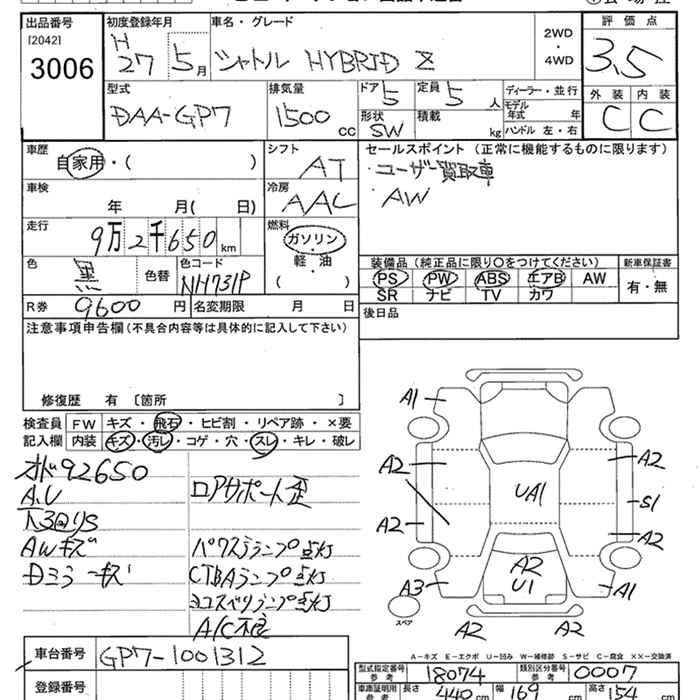 出品番号
[2042]
3006
初度登録年月
H
27 5月
車名・グレード
シャトル HYBRID Z
2WD
・
4WD
評価点
3.5
外装 内装
C C
型式
DAA-GP7
排気量
1500 cc
ドア 5
形状 SW
定員 5 人
積載 kg
ディーラー・並行
モデル年式 年
ハンドル 左・右
車歴
自家用・( )
シフト
AT
セールスポイント (正常に機能するものに限ります)
ユーザー買取車
AW
車検
年 月( 日)
冷房
AAC
走行
9万2千650 km
燃料
ガソリン
・
軽・油
( )
色
黒
色替
色コード
NH731P
装備品 (純正品に限り〇をつけてください)
PS PW ABS エアB AW
SR ナビ TV カワ
新車保証書
有・無
R券 9600 円
名変期限 月 日
後日品
注意事項申告欄 (不具合内容等は具体的に記入して下さい)
修復歴 有 〔箇所 〕
検査員
記入欄
FW キズ・飛石・ヒビ割・リペア跡・×要
内装 キズ・汚レ・コゲ・穴・スレ・キレ・破レ
オド92650
A.U
下回りS
AWキズ
Dミラーキズ
ロアサポート歪
バクスラランプ点灯
CTBAランプ点灯
ヨコスベリランプ点灯
A/C不良
A1
A2
A2
A3
UA1
A2
U1
A2
S1
A2
A1
A2
A2
スペア
A-キズ E-エクボ U-凹み W-補修跡 S-サビ C-腐食 ××-交換済
車台番号 GP7-1001312
登録番号
型式指定番号 参考 18074
類別区分番号 参考 0007
車庫証明用 参考
長さ 440 cm
幅 169 cm
高さ 154 cm